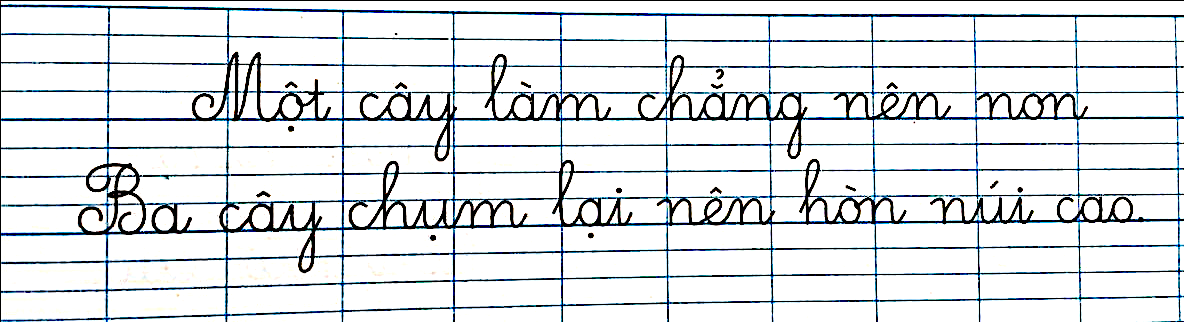 Một cây làm chẳng nên non
Ba cây chụm lại nên hòn núi cao.